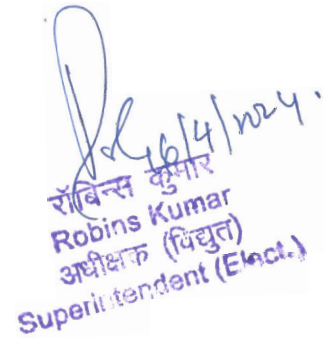 16/4/2024.
रॉबिन्स कुमार
Robins Kumar
अधीक्षक (विद्युत)
Superintendent (Elect.)